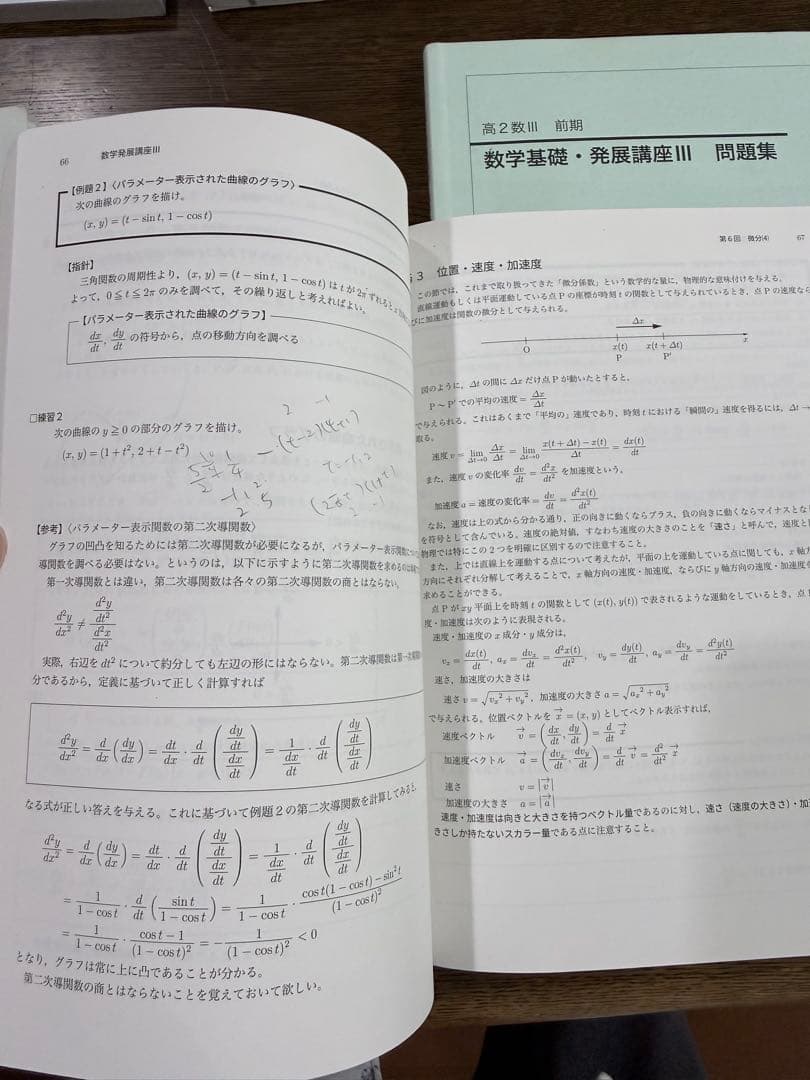 高2数III 前期
数学基礎・発展講座III 問題集
66 数学発展講座III
【例題2】〈パラメーター表示された曲線のグラフ〉
次の曲線のグラフを描け。
(x, y) = (t − sin t, 1 − cos t)
【指針】
三角関数の周期性より,(x, y) = (t − sin t, 1 − cos t) は t が 2π ずれると x
よって,0 ≦ t ≦ 2π のみを調べて,その繰り返しと考えればよい。
【パラメーター表示された曲線のグラフ】
dx/dt, dy/dt の符号から,点の移動方向を調べる
□練習2
次の曲線の y ≧ 0 の部分のグラフを描け。
(x, y) = (1 + t², 2 + t − t²)
−(t−2)(t+1)
【参考】〈パラメーター表示関数の第二次導関数〉
グラフの凹凸を知るためには第二次導関数が必要になるが,パラメーター表示関数
導関数を調べる必要はない。というのは,以下に示すように第二次導関数を求めるのは
第一次導関数とは違い,第二次導関数は各々の第二次導関数の商とはならない。
d²y/dx² ≠ (d²y/dt²)/(d²x/dt²)
実際,右辺を dt² について約分しても左辺の形にはならない。第二次導関数は第一次
分であるから,定義に基づいて正しく計算すれば
d²y/dx² = d/dx (dy/dx) = dt/dx · d/dt ((dy/dt)/(dx/dt)) = 1/(dx/dt) · d/dt ((dy/dt)/(dx/dt))
なる式が正しい答えを与える。これに基づいて例題2の第二次導関数を計算してみると,
d²y/dx² = d/dx (dy/dx) = dt/dx · d/dt ((dy/dt)/(dx/dt)) = 1/(dx/dt) · d/dt ((dy/dt)/(dx/dt))
= 1/(1 − cos t) · d/dt (sin t/(1 − cos t)) = 1/(1 − cos t) · (cos t(1 − cos t) − sin² t)/(1 − cos t)²
= 1/(1 − cos t) · (cos t − 1)/(1 − cos t)² = − 1/(1 − cos t)² < 0
となり,グラフは常に上に凸であることが分かる。
第二次導関数の商とはならないことを覚えておいて欲しい。
第6回 微分(4) 67
3 位置・速度・加速度
この節では,これまで取り扱ってきた「微分係数」という数学的な量に,物理的な意味付けを与える。
直線運動もしくは平面運動している点 P の座標が時刻 t の関数として与えられているとき,点 P の速度なら
びに加速度は関数の微分として与えられる。
Δx
O x(t) x(t + Δt) x
P P′
図のように,Δt の間に Δx だけ点 P が動いたとすると,
P ~ P′ での平均の速度 = Δx/Δt
で与えられる。これはあくまで「平均の」速度であり,時刻 t における「瞬間の」速度を得るには,Δt →
取る。
速度 v = lim_{Δt→0} Δx/Δt = lim_{Δt→0} (x(t + Δt) − x(t))/Δt = dx(t)/dt
また,速度 v の変化率 dv/dt = d²x/dt² を加速度という。
加速度 a = 速度の変化率 = dv/dt = d²x(t)/dt²
なお,速度は上の式から分かる通り,正の向きに動くならプラス,負の向きに動くならマイナスとな
を符号として含んでいる。速度の絶対値,すなわち速度の大きさのことを「速さ」と呼んで,速度と
物理では特にこの2つを明確に区別するので注意すること。
また,上では直線上を運動する点について考えたが,平面の上を運動している点に関しても,x 軸方
方向にそれぞれ分解して考えることで,x 軸方向の速度・加速度,ならびに y 軸方向の速度・加速度を
求めることができる。
点 P が xy 平面上を時刻 t の関数として (x(t), y(t)) で表されるような運動をしているとき,点 P
度・加速度は次のように表現される。
速度・加速度の x 成分・y 成分は,
vₓ = dx(t)/dt, aₓ = dvₓ/dt = d²x(t)/dt², v_y = dy(t)/dt, a_y = dv_y/dt = d²y(t)/dt²
速さ,加速度の大きさは
速さ v = √(vₓ² + v_y²),加速度の大きさ a = √(aₓ² + a_y²)
で与えられる。位置ベクトルを x⃗ = (x, y) としてベクトル表示すれば,
速度ベクトル v⃗ = (dx/dt, dy/dt) = d/dt x⃗
加速度ベクトル a⃗ = (dvₓ/dt, dv_y/dt) = d/dt v⃗ = d²/dt² x⃗
速さ v = |v⃗|
加速度の大きさ a = |a⃗|
速度・加速度は向きと大きさを持つベクトル量であるのに対し,速さ(速度の大きさ)・加
きさしか持たないスカラー量である点に注意すること。